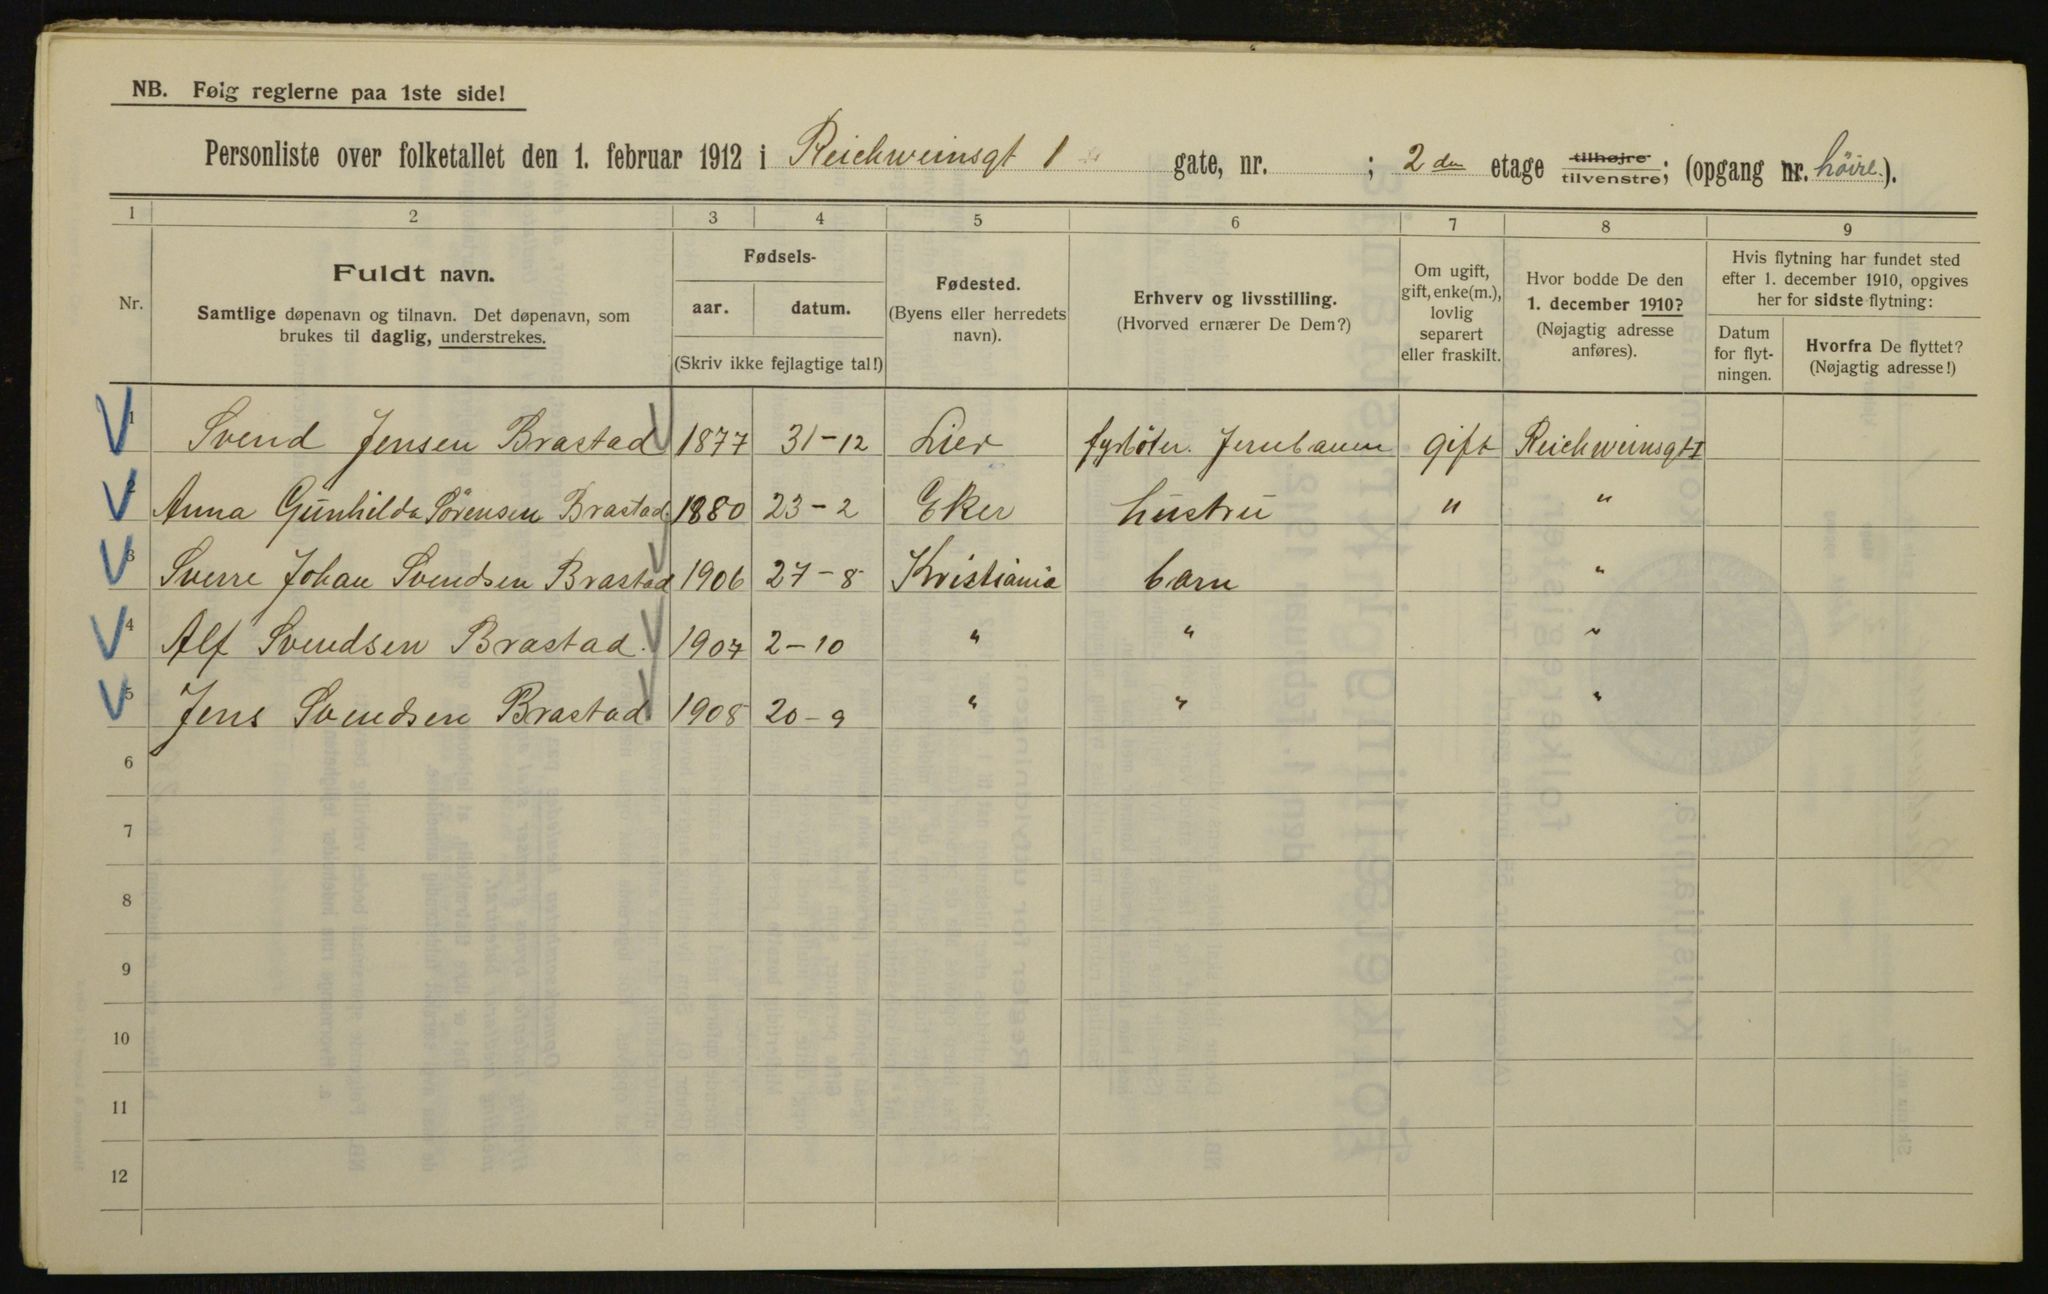 NB. Følg reglerne paa 1ste side!
Personliste over folketallet den 1. februar 1912 i Reichweinsgt 1 gate, nr. ; 2den etage tilhøjre tilvenstre; (opgang nr. höire.).
1 2 3 4 5 6 7 8 9
Nr.
Fuldt navn.
Samtlige døpenavn og tilnavn. Det døpenavn, som
brukes til daglig, understrekes.
Fødsels-
aar. datum.
(Skriv ikke fejlagtige tal!)
Fødested.
(Byens eller herredets
navn).
Erhverv og livsstilling.
(Hvorved ernærer De Dem?)
Om ugift,
gift, enke(m.),
lovlig
separert
eller fraskilt.
Hvor bodde De den
1. december 1910?
(Nøjagtig adresse
anføres).
Hvis flytning har fundet sted
efter 1. december 1910, opgives
her for sidste flytning:
Datum
for flyt-
ningen.
Hvorfra De flyttet?
(Nøjagtig adresse!)
1 Svend Jensen Brastad 1877 31-12 Lier fyrböter. Jernbanen gift Reichweinsgt I
2 Anna Gunhilda Sörensen Brastad 1880 23-2 Eker hustru " "
3 Sverre Johan Svendsen Brastad 1906 27-8 Kristiania barn "
4 Alf Svendsen Brastad. 1907 2-10 " " "
5 Jens Svendsen Brastad 1908 20-9 " " "
6
7
8
9
10
11
12